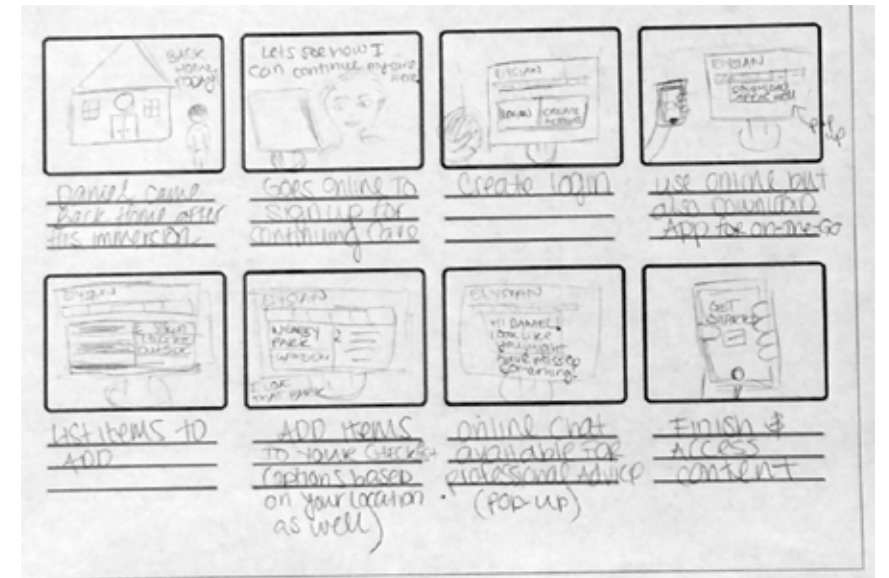 BACK
HOME
TODAY
Daniel came
Back Home after
his immersion.
Lets see how I
can continue my care
HERE
Goes online to
sign up for
continuing care
ELYSIAN
LOGIN
CREATE
Create login
ELYSIAN
DOWNLOAD
POP-UP
use online but
also download
App for on-the-Go
ELYSIAN
List items to
ADD
ELYSIAN
NEARBY
PARK
I LOVE
THAT PARK!
ADD items
to your checklist
(options based
on your location
as well)
ELYSIAN
HI DANIEL!
LOOK LIKE
you might
have missed
something.
online chat
available for
professional Advice
(POP-UP)
GET
STARTED
Finish &
Access
content